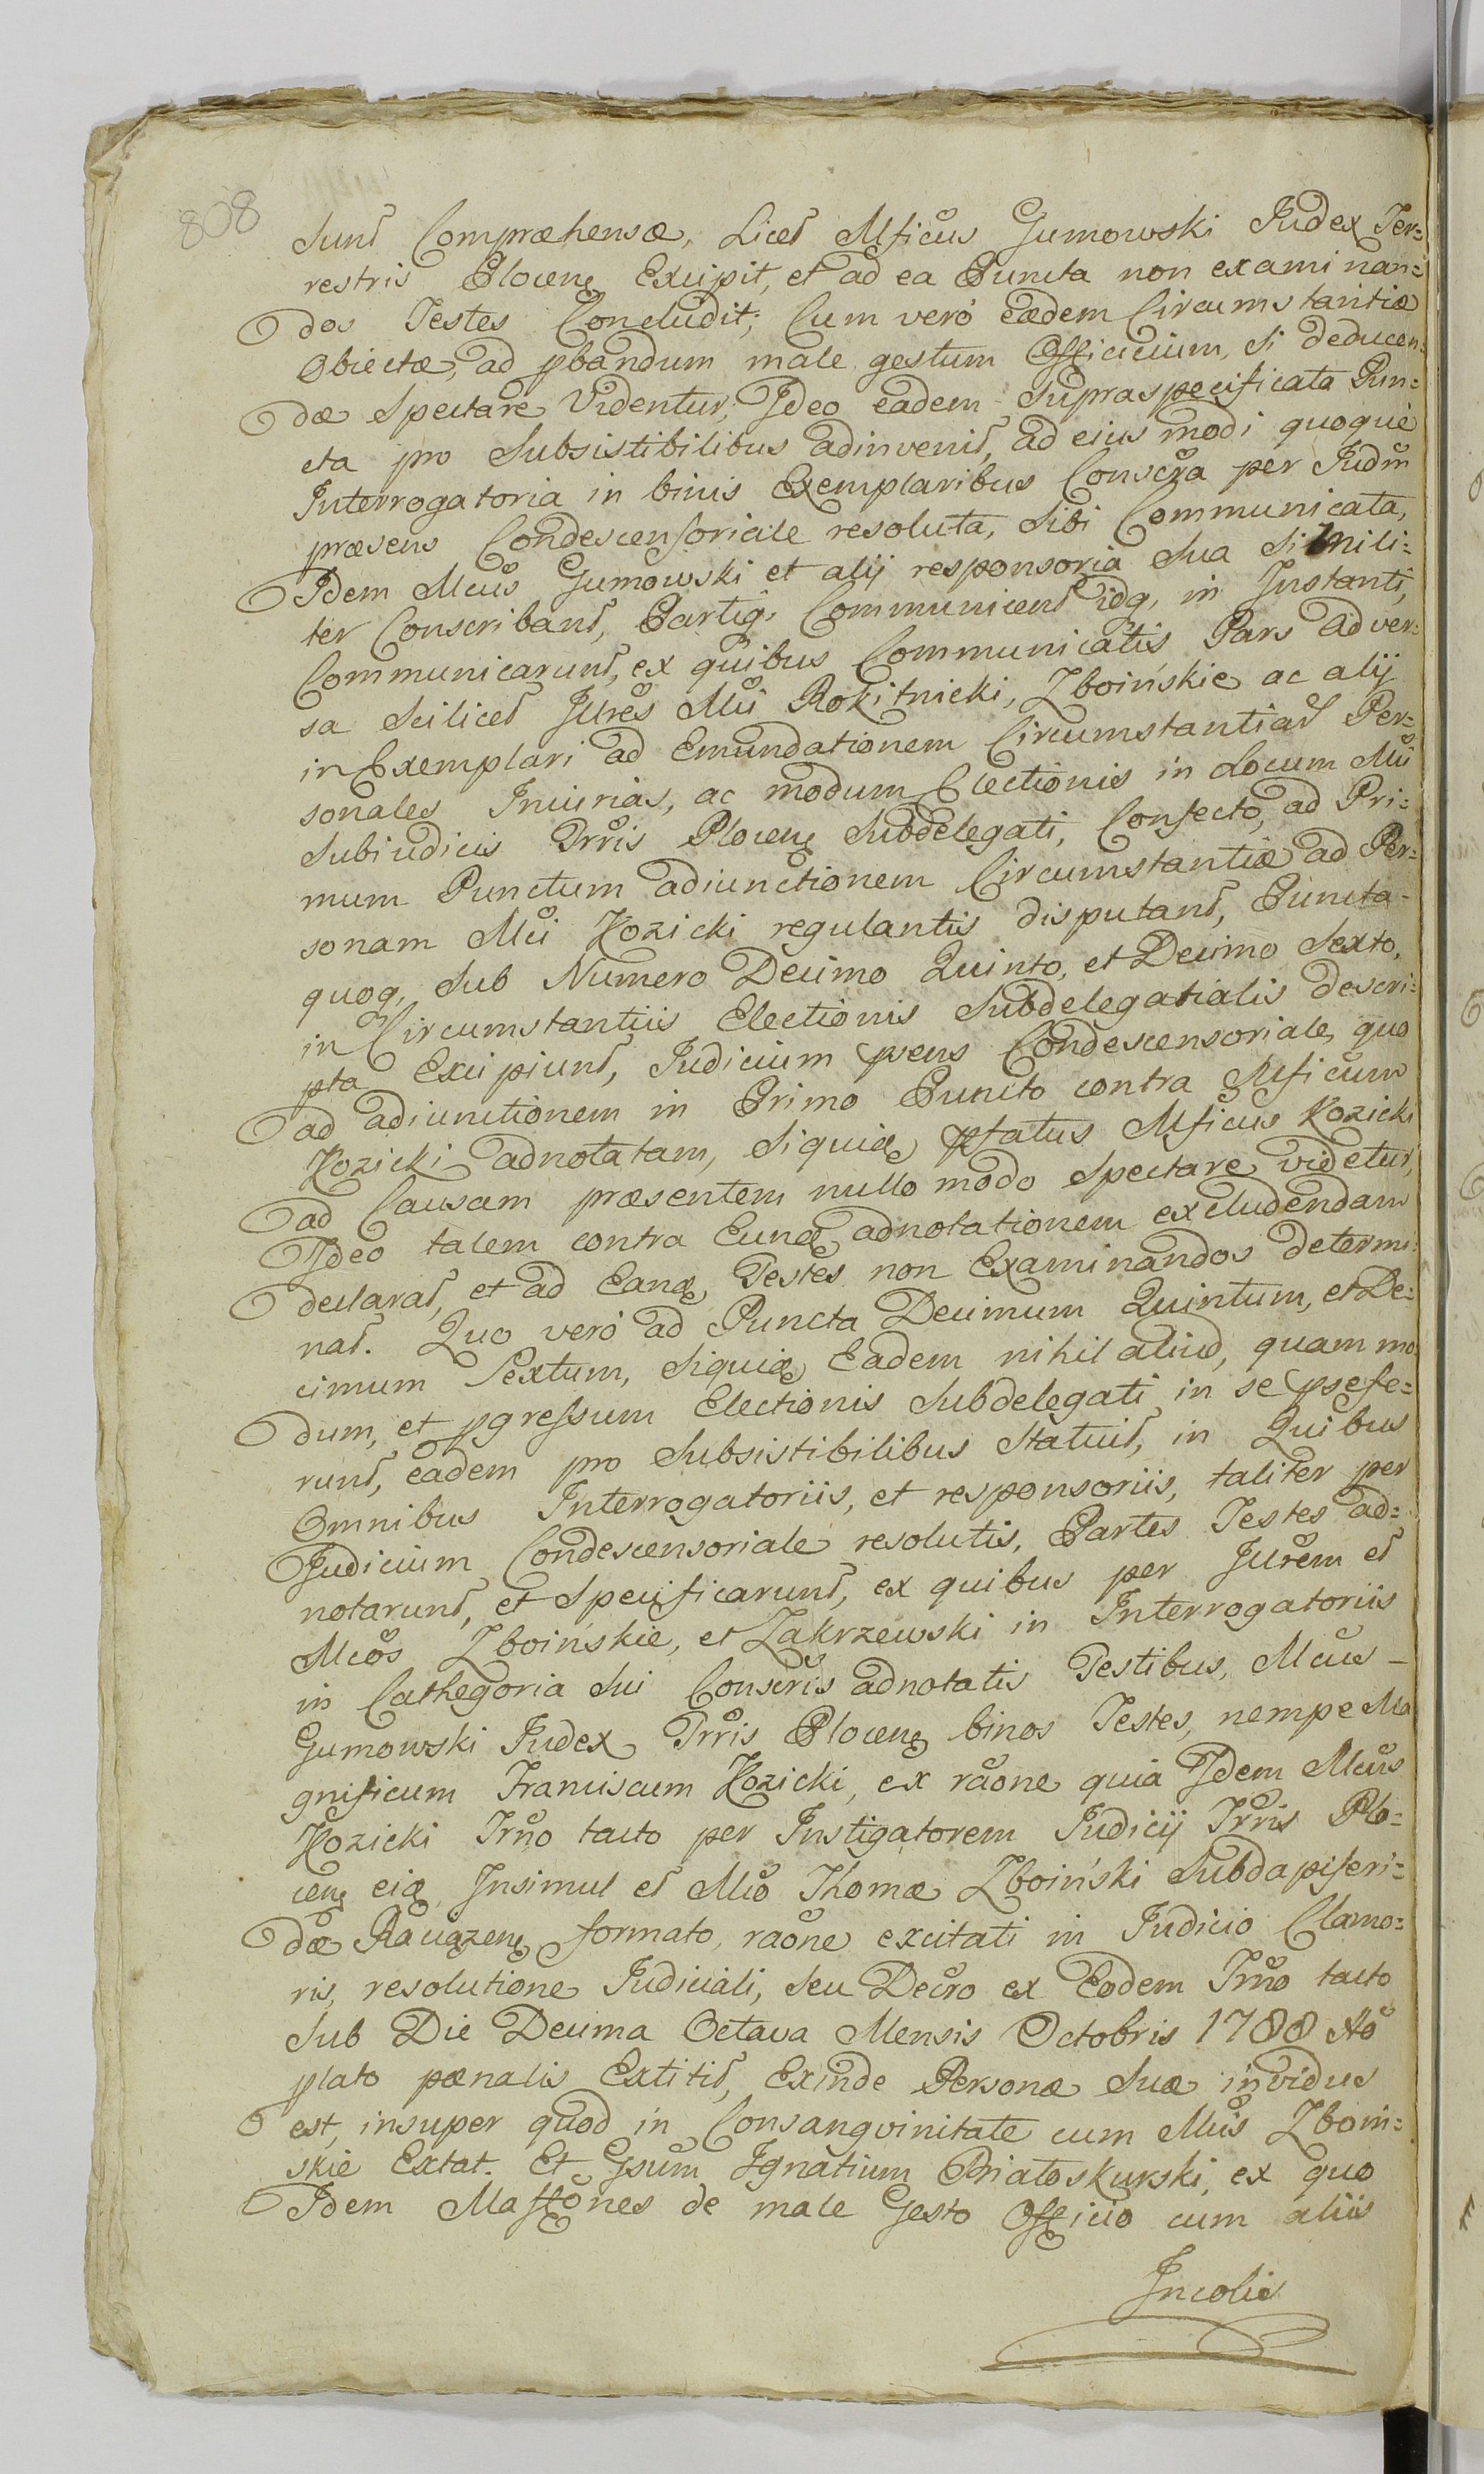 808
Sunt Compræhensæ, Licet Mficus Gumowski Judex Ter=
restris Plocens Excipit, et ad ea Puncta non examinan=
dos Testes Concludit; Cum vero eædem Circumstantiæ
Obiectæ, ad pbandum male gestum Officium, si deducen=
dæ Spectare Videntur, Ideo eadem Supraspecificata Pun=
cta pro Subsistibilibus adinvenit, ad eius modi quoque
Interrogatoria in binis Exemplaribus Conscta per Judm
præsens Condescensoriale resoluta, Sibi Communicata,
Idem Mcus Gumowski et alij responsoria Sua Simili=
ter Conscribant, Partiq, Communicent idq, in Instanti,
Communicarunt, ex quibus Communicatis Pars adver=
sa Scilicet Jllres Mci Rokitnicki, Zboińskie ac alij
in Exemplari ad Emundationem Circumstantiar Per=
sonales Iniurias, ac modum Electionis in Locum Mci
Subiudicis Trris Plocens Subdelegati, Confecto, ad Pri=
mum Punctum adiunctionem Circumstantiæ ad Per=
sonam Mci Kozicki regulantis disputant, Puncta
quoq, Sub Numero Decimo Quinto, et Decimo Sexto,
in Circumstantiis Electionis Subdelegatialis descri=
pta Excipiunt, Judicium psens Condescensoriale, quo
ad adiunctionem in Primo Puncto contra Mficum
Kozicki adnotatam, Siquidē pfatus Mficus Kozicki
ad Causam præsentem nullo modo Spectare videtur,
Ideo talem contra Eundē adnotationem excludendam
declarat, et ad Eandē Testes non Examinandos determi=
nat. Quo vero ad Puncta Decimum Quintum, et De=
cimum Sextum, Siquidē Eadem nihil aliud, quam mo
dum, et pgressum Electionis Subdelegati in se psefe=
runt, eadem pro Subsistibilibus Statuit, in Quibus
Omnibus Interrogatoriis, et responsoriis, taliter per
Judicium Condescensoriale resolutis, Partes Testes ad=
notarunt, et Specificarunt, ex quibus per Jllrem et
Mcos Zboińskie, et Zakrzewski in Interrogatoriis
in Cathegoria Sui Conscris adnotatis Testibus, Mcus
Gumowski Judex Trris Plocens binos Testes, nempe Ma
gnificum Franciscum Kozicki, ex raone quia Idem Mcus
Kozicki Trno tacto per Instigatorem Judicij Trris Plo=
cens eiq Insimul et Mco Thomæ Zboiński Subdapiferi=
dæ Raciązens formato, raone excitati in Judicio Clamo=
ris, resolutione Judiciali, Seu Decro ex Eodem Trno tacto
Sub Die Decima Octava Mensis Octobris 1788 Ao
plato pænalis Extitit, Exinde Personæ Suæ invidus
est, insuper quod in Consangvinitate cum Mcis Zboiń=
skie Extat. Et Gsum Ignatium Białoskurski, ex quo
Idem Mastones de male Gesto Officio cum aliis
Incolis